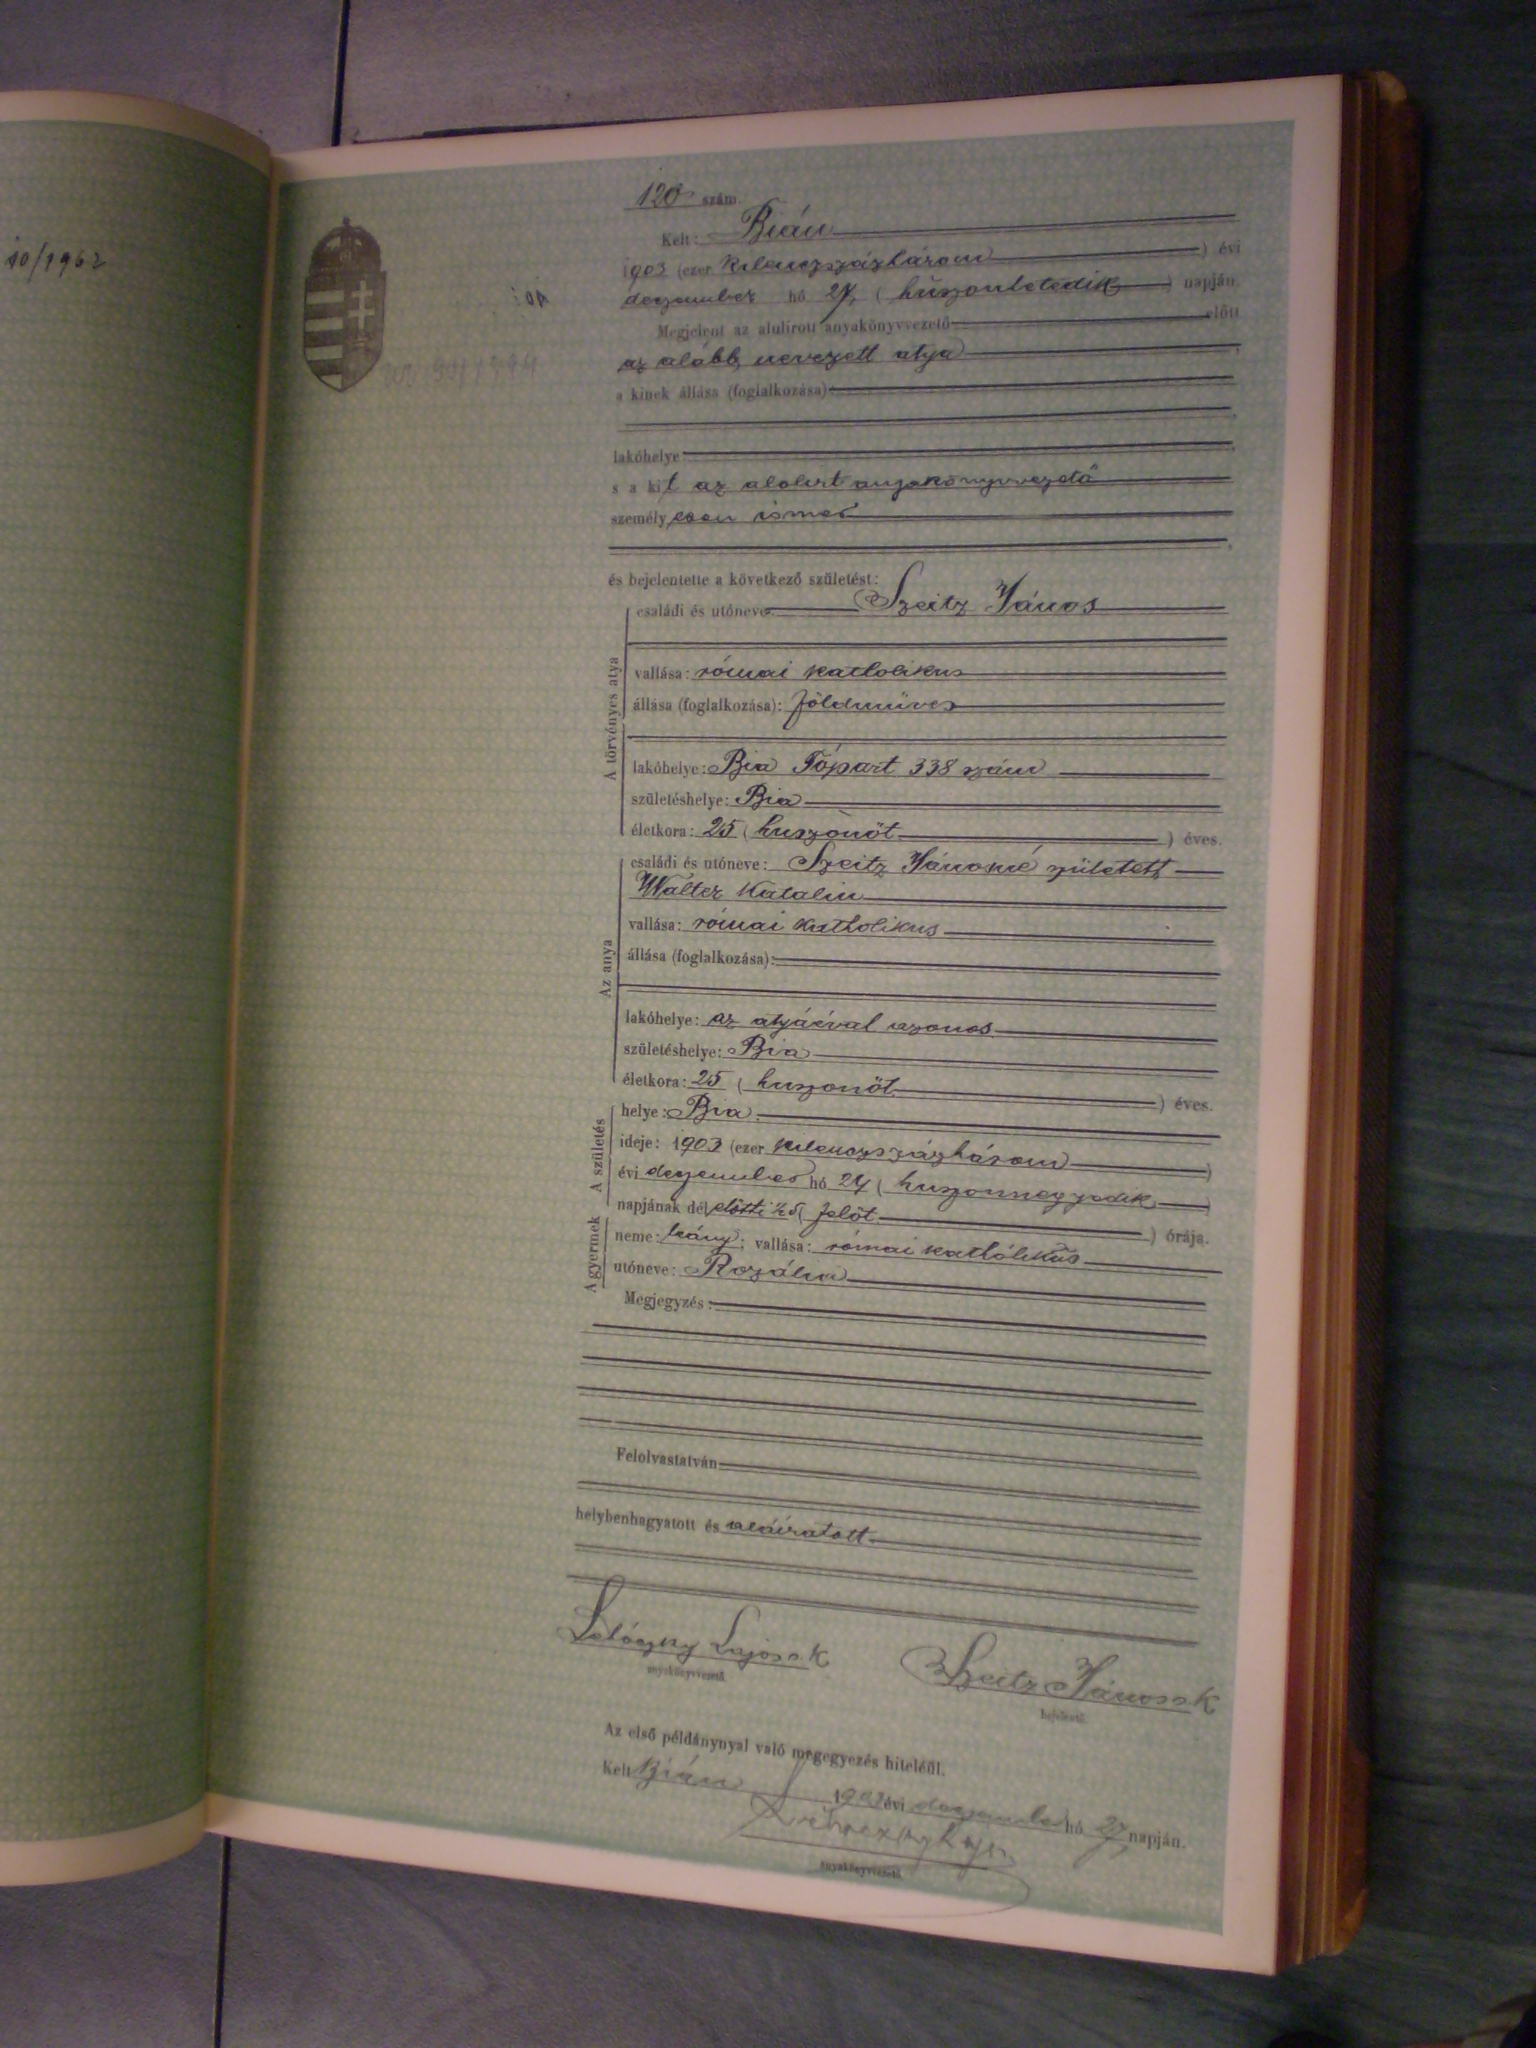 10/1962
120 szám.
Kelt: Bián
1903 (ezer kilenczszázhárom) évi
dezember hó 27. (huszonhetedik) napján
Megjelent az alulirott anyakönyvvezető előtt
az alább nevezett atya,
a kinek állása (foglalkozása)
lakóhelye
s a kit az alolirt anyakönyvvezető
személyesen ismer
és bejelentette a következő születést:
A törvényes atya
családi és utóneve Szeitz János
vallása: római katholikus
állása (foglalkozása): földmüves
lakóhelye: Bia Tópart 338 szám
születéshelye: Bia
életkora: 25 (huszonöt) éves.
Az anya
családi és utóneve: Szeitz Jánosné született
Walter Katalin
vallása: római katholikus
állása (foglalkozása):
lakóhelye: az atyáéval azonos
születéshelye: Bia
életkora: 25 (huszonöt) éves.
A születés
helye: Bia
ideje: 1903 (ezer kilenczszázhárom)
évi dezember hó 24 (huszonnegyedik)
napjának dél előtti ½5 (felöt) órája.
A gyermek
neme: leány; vallása: római katholikus
utóneve: Rozália
Megjegyzés:
Felolvastatván
helybenhagyatott és aláiratott
Lajos sk
anyakönyvvezető
Szeitz János sk
bejelentő
Az első példánynyal való megegyezés hiteléül.
Kelt Bián 1903 évi dezember hó 27 napján.
anyakönyvvezető